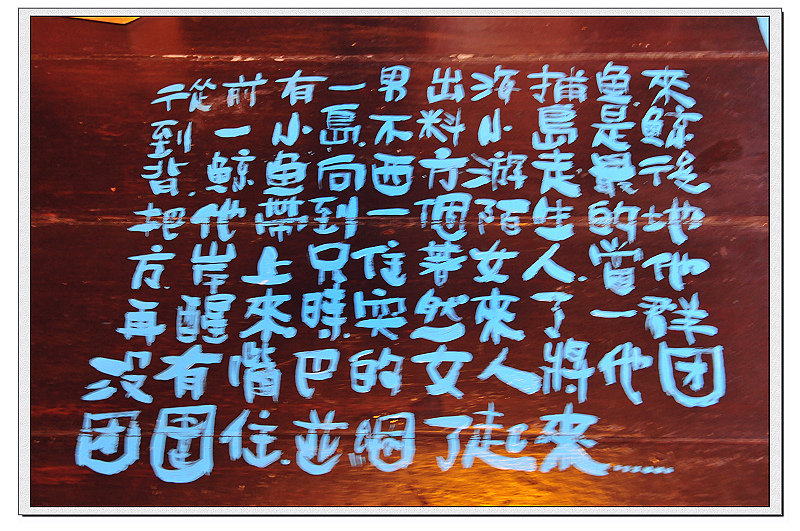 從前有一男出海捕魚來
到一小島.不料小島是鯨
背.鯨魚向西方游走最後
把他帶到一個陌生的地
方.岸上只住著女人.當他
再醒來時突然來了一群
没有嘴巴的女人將他团
团圍住.並綑了起來......